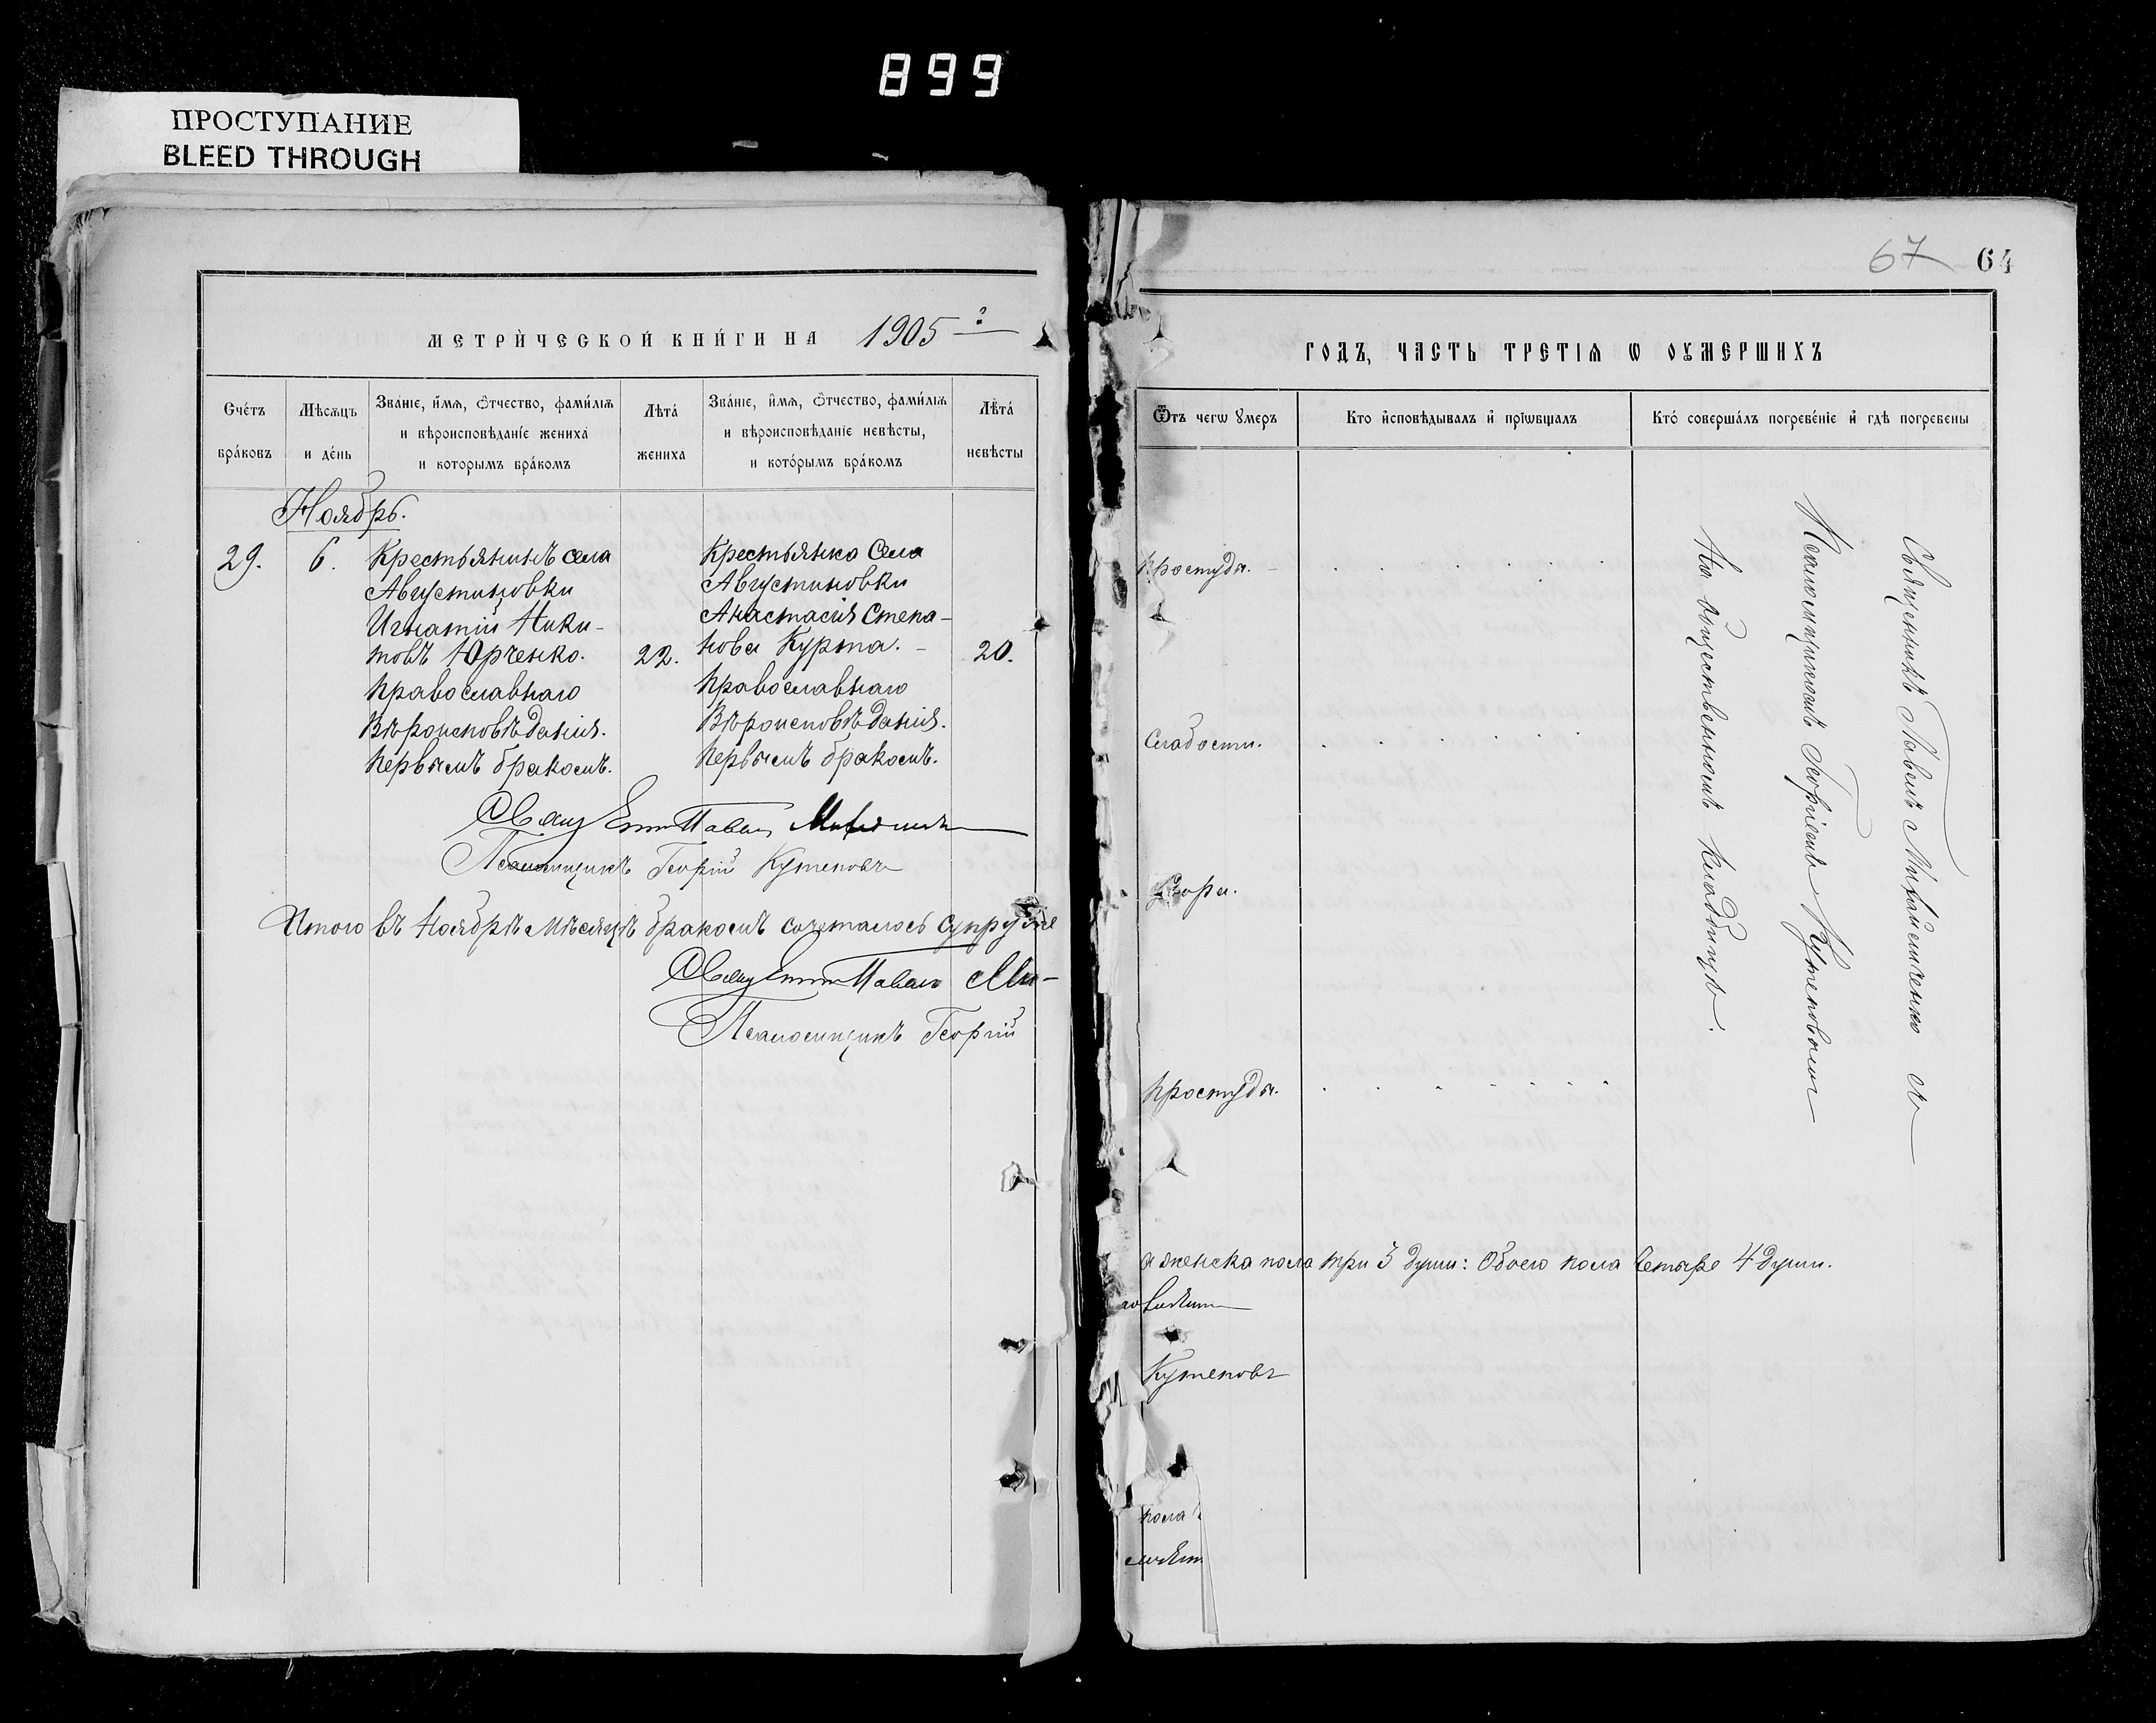 899
ПРОСТУПАНИЕ
BLEED THROUGH
МЕТРИЧЕСКОЙ КНИГИ НА 1905 г
Счетъ браковъ
Мѣсяцъ и день
Званіе, имя, ѻтчество, фамилія и вѣроисповѣданіе жениха и которымъ бракомъ
Лѣта жениха
Званіе, имя, ѻтчество, фамилія и вѣроисповѣданіе невѣсты, и которымъ бракомъ
Лѣта невѣсты
Ноябрь.
29. 6.
Крестьянинъ села
Августиновки
Игнатій Ники-
товъ Юрченко.
Православнаго
Вѣроисповѣданія.
Первымъ бракомъ.
22.
Крестьянка Села
Августиновки
Анастасія Степа-
нова Курта.
Православнаго
Вѣроисповѣданія.
Первымъ бракомъ.
20.
Павелъ
Псаломщикъ Георгій Кутеповъ
Итого въ Ноябрѣ мѣсяцѣ бракомъ сочеталось супруже
Павелъ Ми-
Псаломщикъ Георгій
67 64
ГОДЪ, ЧАСТЬ ТРЕТІѦ Ѡ ОУМЕРШИХЪ
Ѿтъ чегѡ ꙋмеръ
Кто исповѣдывалъ и прїѡбщалъ
Кто совершалъ погребеніе и гдѣ погребены
Простуды.
Слабости.
Простуды.
Священникъ Павелъ Михайличенко съ
Псаломщикомъ Георгіемъ Кутеповымъ
На общественномъ кладбищѣ.
женска пола три 3 души: Обоего пола Четыре 4 души.
Кутеповъ
пола